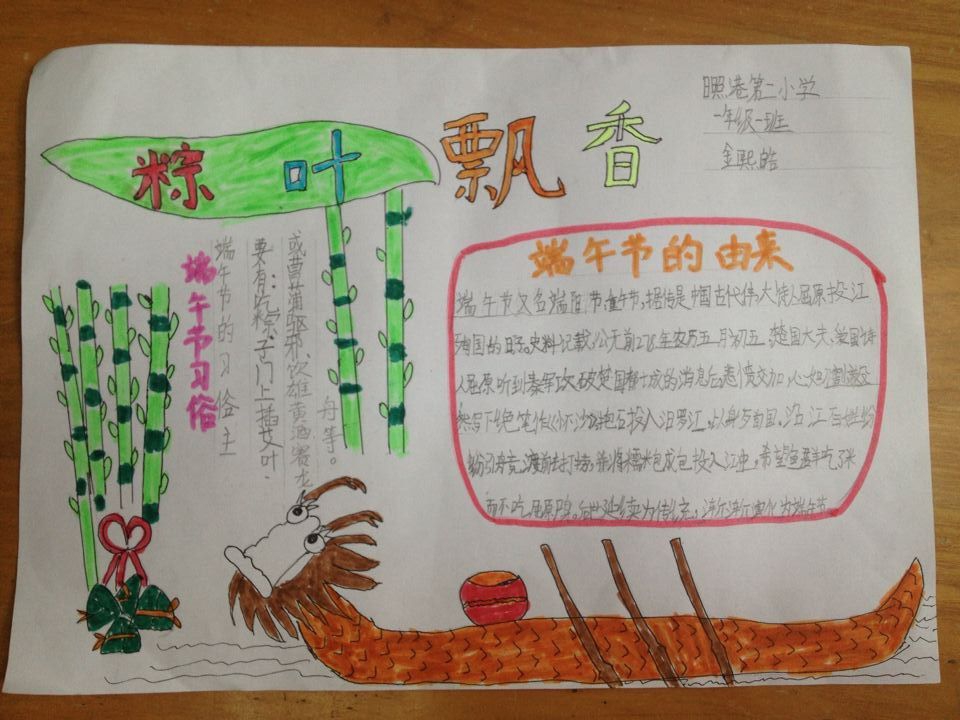 粽叶飘香
照港第二小学
一年级一班
金熙皓
端午节习俗
端午节的习俗主
要有:吃粽子,门上插艾叶,
或菖蒲驱邪,饮雄黄酒,赛龙
舟等。
端午节的由来
端午节又名端阳节、重午节,据传是中国古代伟大诗人屈原投江
殉国的日子。史料记载,公元前278年农历五月初五,楚国大夫、爱国诗
人屈原听到秦军攻破楚国都城的消息后,悲愤交加,心如刀割,毅
然写下绝笔作《怀沙》,抱石投入汨罗江,以身殉国。沿江百姓纷
纷引舟竞渡前去打捞,并将糯米包成包投入江中,希望鱼虾吃了米
而不吃屈原
延续为传统,渐渐演化为端午节